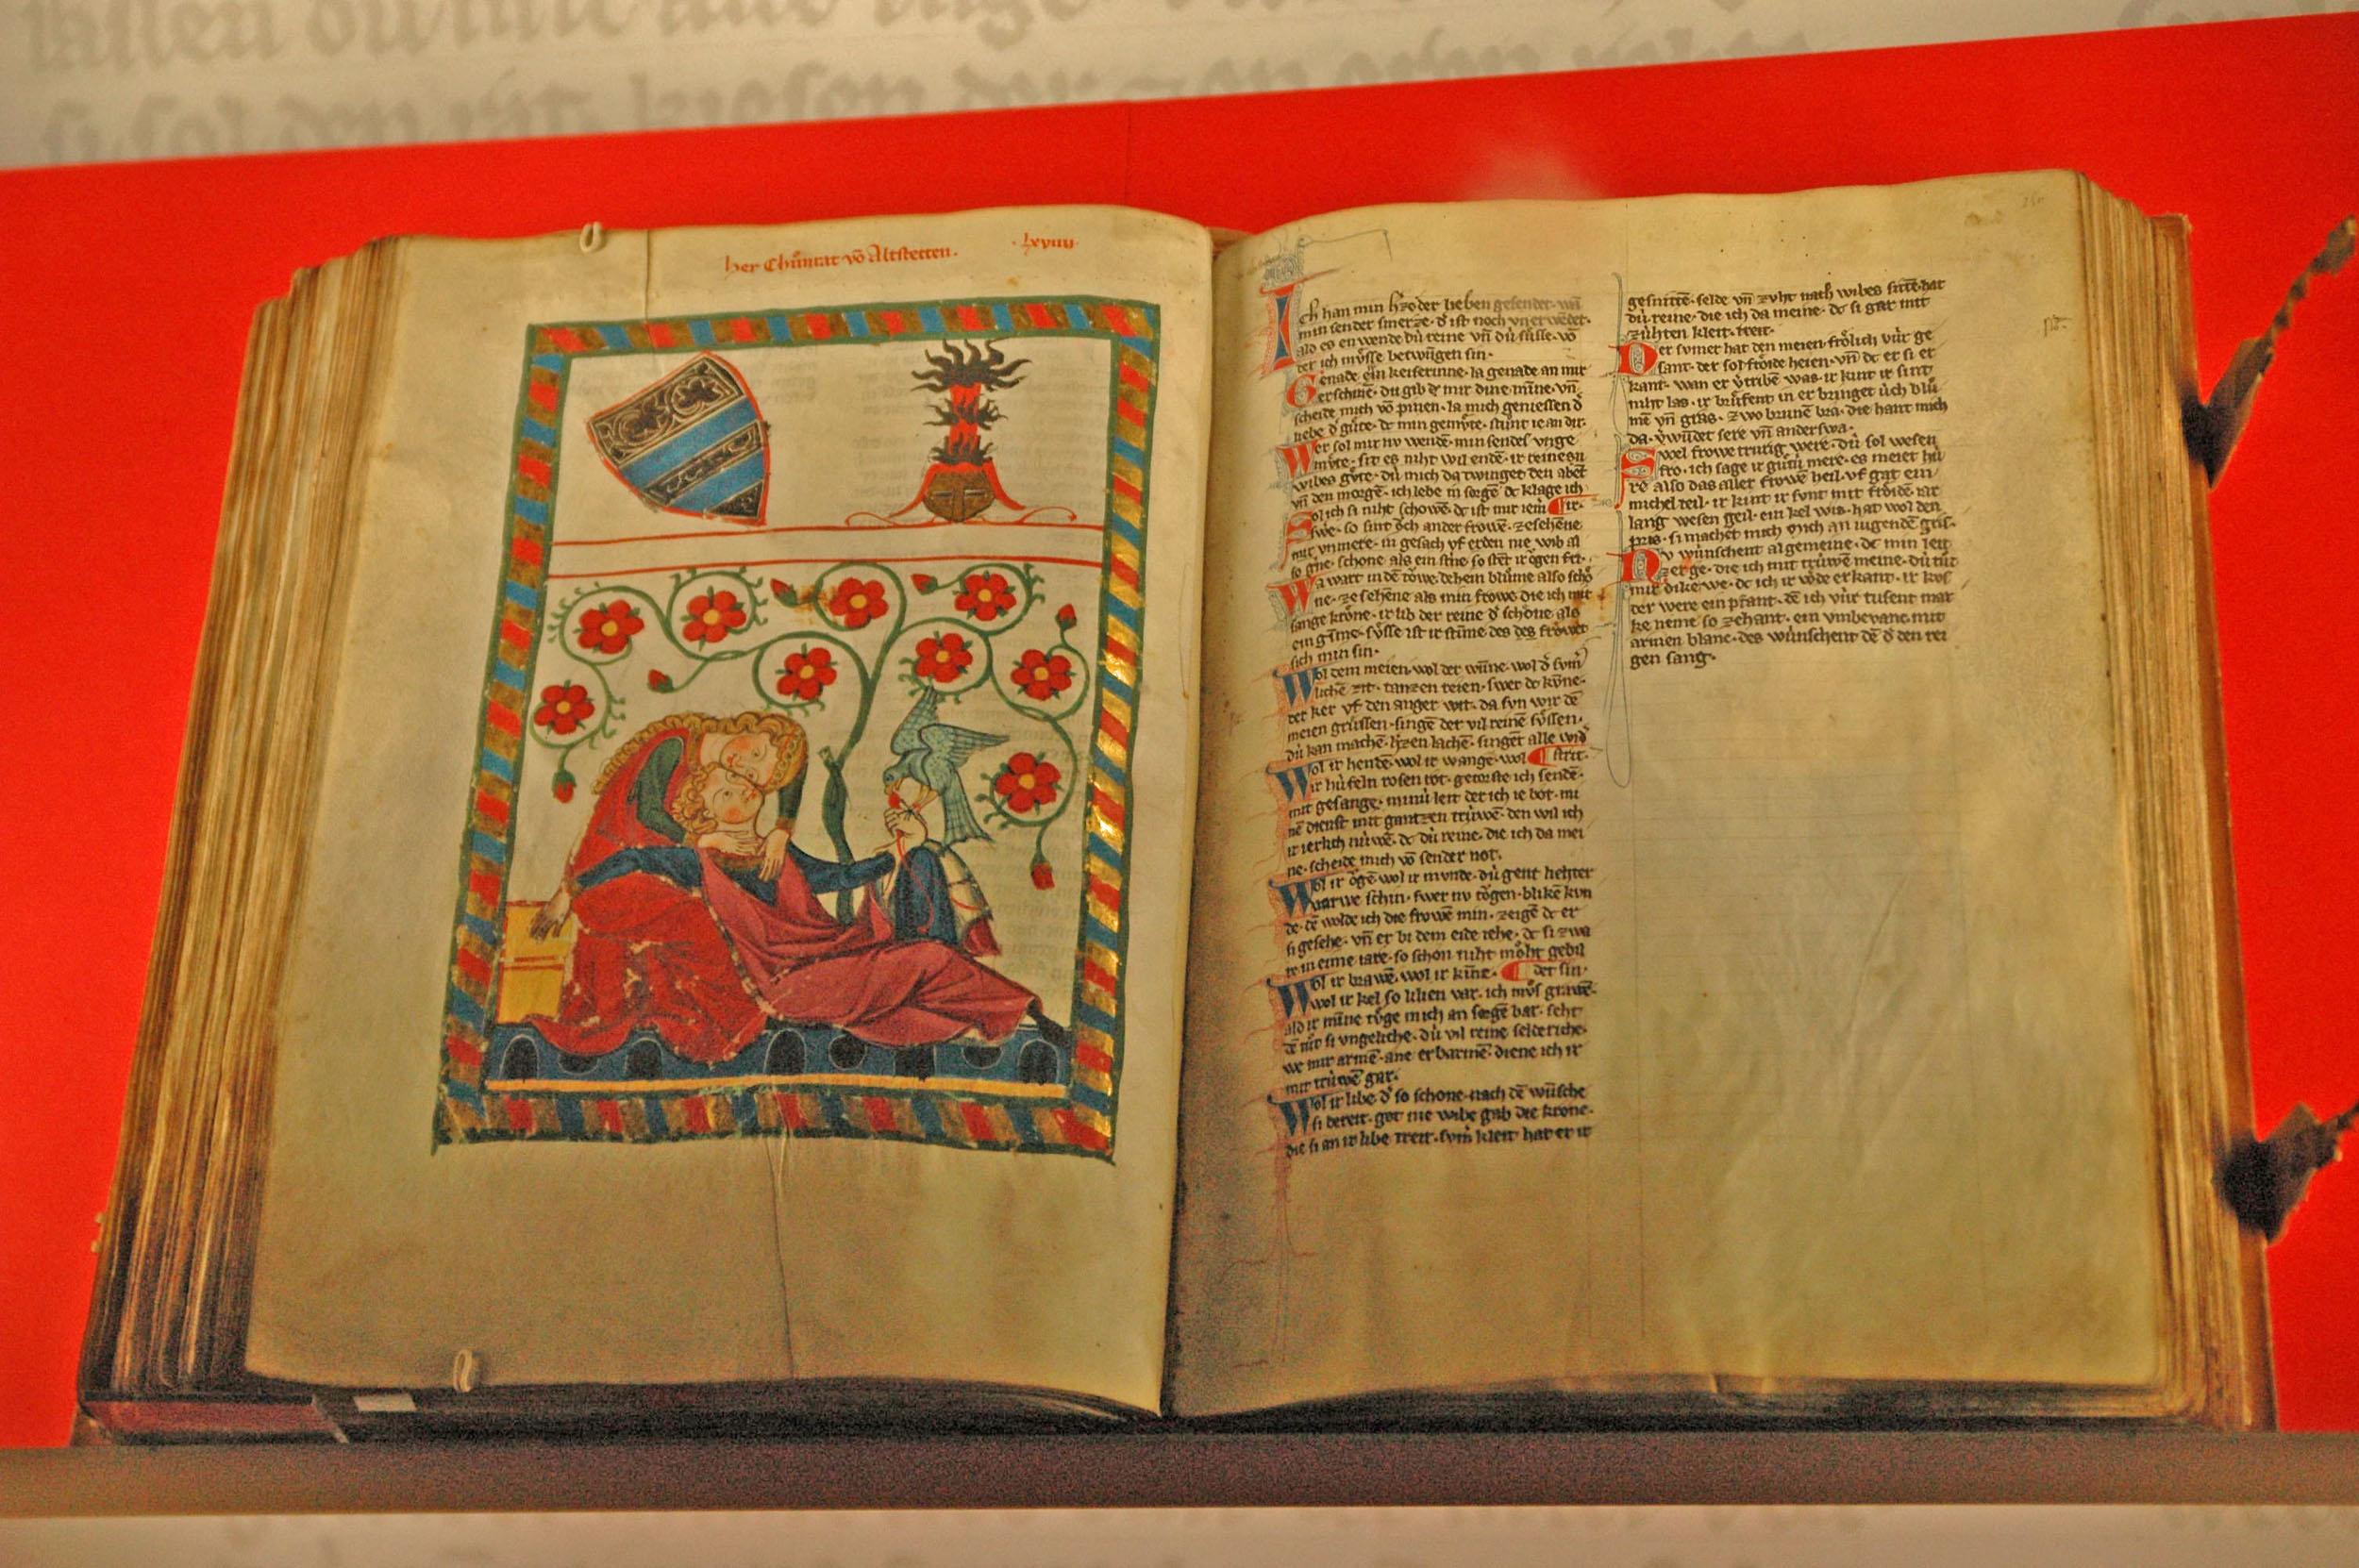 her Chůnrat vō Altstetten.
lxviiii
Ich han min hzo der lieben gesendet. wā
min sender smerze. d̄ ist noch vnerwēdet.
ald es en wende dù reine vn̄ dù sùsse. vō
der ich mvͦsse betwūgen sin.
Genade ein keiserinne. la genade an mir
erschinē. du gib d̄ mir dine mīne. vn̄
scheide mich vō pinen. la mich geniessen d̄
liebe d̄ gùte. dc min gemvͤte. stùnt ie an dir.
Wer sol mir nv wendē. min sendes vnge
mvͤte. sit es niht wil endē. ir reinesn
wibes gvͤte. dù mich da twinget den abēt
vn̄ den morgē. ich lebe in sorgē dc klage ich
Sol ich si niht schowē. dc ist mir iem̄ ¶ ir.
swe. so sint ǒch ander frowē. zesehēne
mir vnmere. in gesach vf erden nie wib al
so gͦne. schone als ein stne so stēt ir ǒgen
Wa wart in dē tǒwe. dehein blůme also schǒ
ne. ze sehēne als min frowe die ich mit
sange krǒne. ir lib der reine d̄ schone als
ein gīme. sùsse ist ir stīme des des frǒwet
sich min sin.
Wol dem meien. wol der wūne. wol d̄ svm̄
lichē zit. tanzen reien. swer dc kvͤne.
der ker vf den anger wit. da svn wir dē
meien grùssen. singē der vil reinē sùssen.
dù kan machē. hzen lachē. singet alle wid̄
Wol ir hendē. wol ir wangē. wol ¶ strit.
ir hùfeln rosen rot. getorste ich sendē.
mit gesange. minù leit der ich ie bot. mi
nē dienst mit gantzen trùwē. den wil ich
ir ierlich nùwē. dc dù reine. die ich da mei
ne. scheide mich vō sender not.
Wol ir ǒgē wol ir mvnde. dù gent liehter
varwe schin. swer nv tǒgen. blikē kvn
de. dē wolde ich die frowē min. zeigē dc er
si gesehe. vn̄ er bi dem eide iehe. dc si zwa
re in eime iare. so schon niht mǒht gebil
Wol ir brawē. wol ir kīne. ¶ det sin.
wol ir kel so lilien var. ich mvͦs grawē.
ald ir mīne tǒge mich an sorgē bar. seht
dē tůt si vngeliche. dù vil reine selderiche.
we mir armē. ane erbarmē. diene ich ir
mit trùwē gar.
Wol ir libe d̄ so schone. nach dē wūsche
si bereit. got nie wibe gab die krone.
die si an ir libe treit. svm̄ kleit hat er ir
gesnittē. selde vn̄ zvht nach wibes sittē. hat
dù reine. die ich da meine. dc si gar mit
zùhten kleit. treit.
Der svmer hat den meien. frǒlich vùr ge
sant. der sol frǒide heien. vn̄ dc er si er
kant. wan er v̄tribē was. ir kint ir sint
niht las. ir brùfent in er bringet ùch blů
mē vn̄ gras. zwo brunē bra. die hant mich
da. v̄wūdet sere vn̄ anderswa.
Swel frowe trurig were. dù sol wesen
fro. ich sage ir gůtù mere. es meiet hù
re also das aller frowē heil. vf gat ein
michel teil. ir kint ir svnt mit frǒidē iar
lang wesen geil. ein kel wis. hat wol den
pris. si machet mich ǒch an iugendē gris.
Nv wùnschent algemeine. dc min leit
zerge. die ich mit trùwē meine. dù tůt
mir dike we. dc ich ir wͦde erkant. ir kos
ter were ein pfant. dē ich vùr tusent mar
ke neme so zehant. ein vmbevanc. mit
armen blanc. des wùnschent dē d̄ den rei
gen sang.